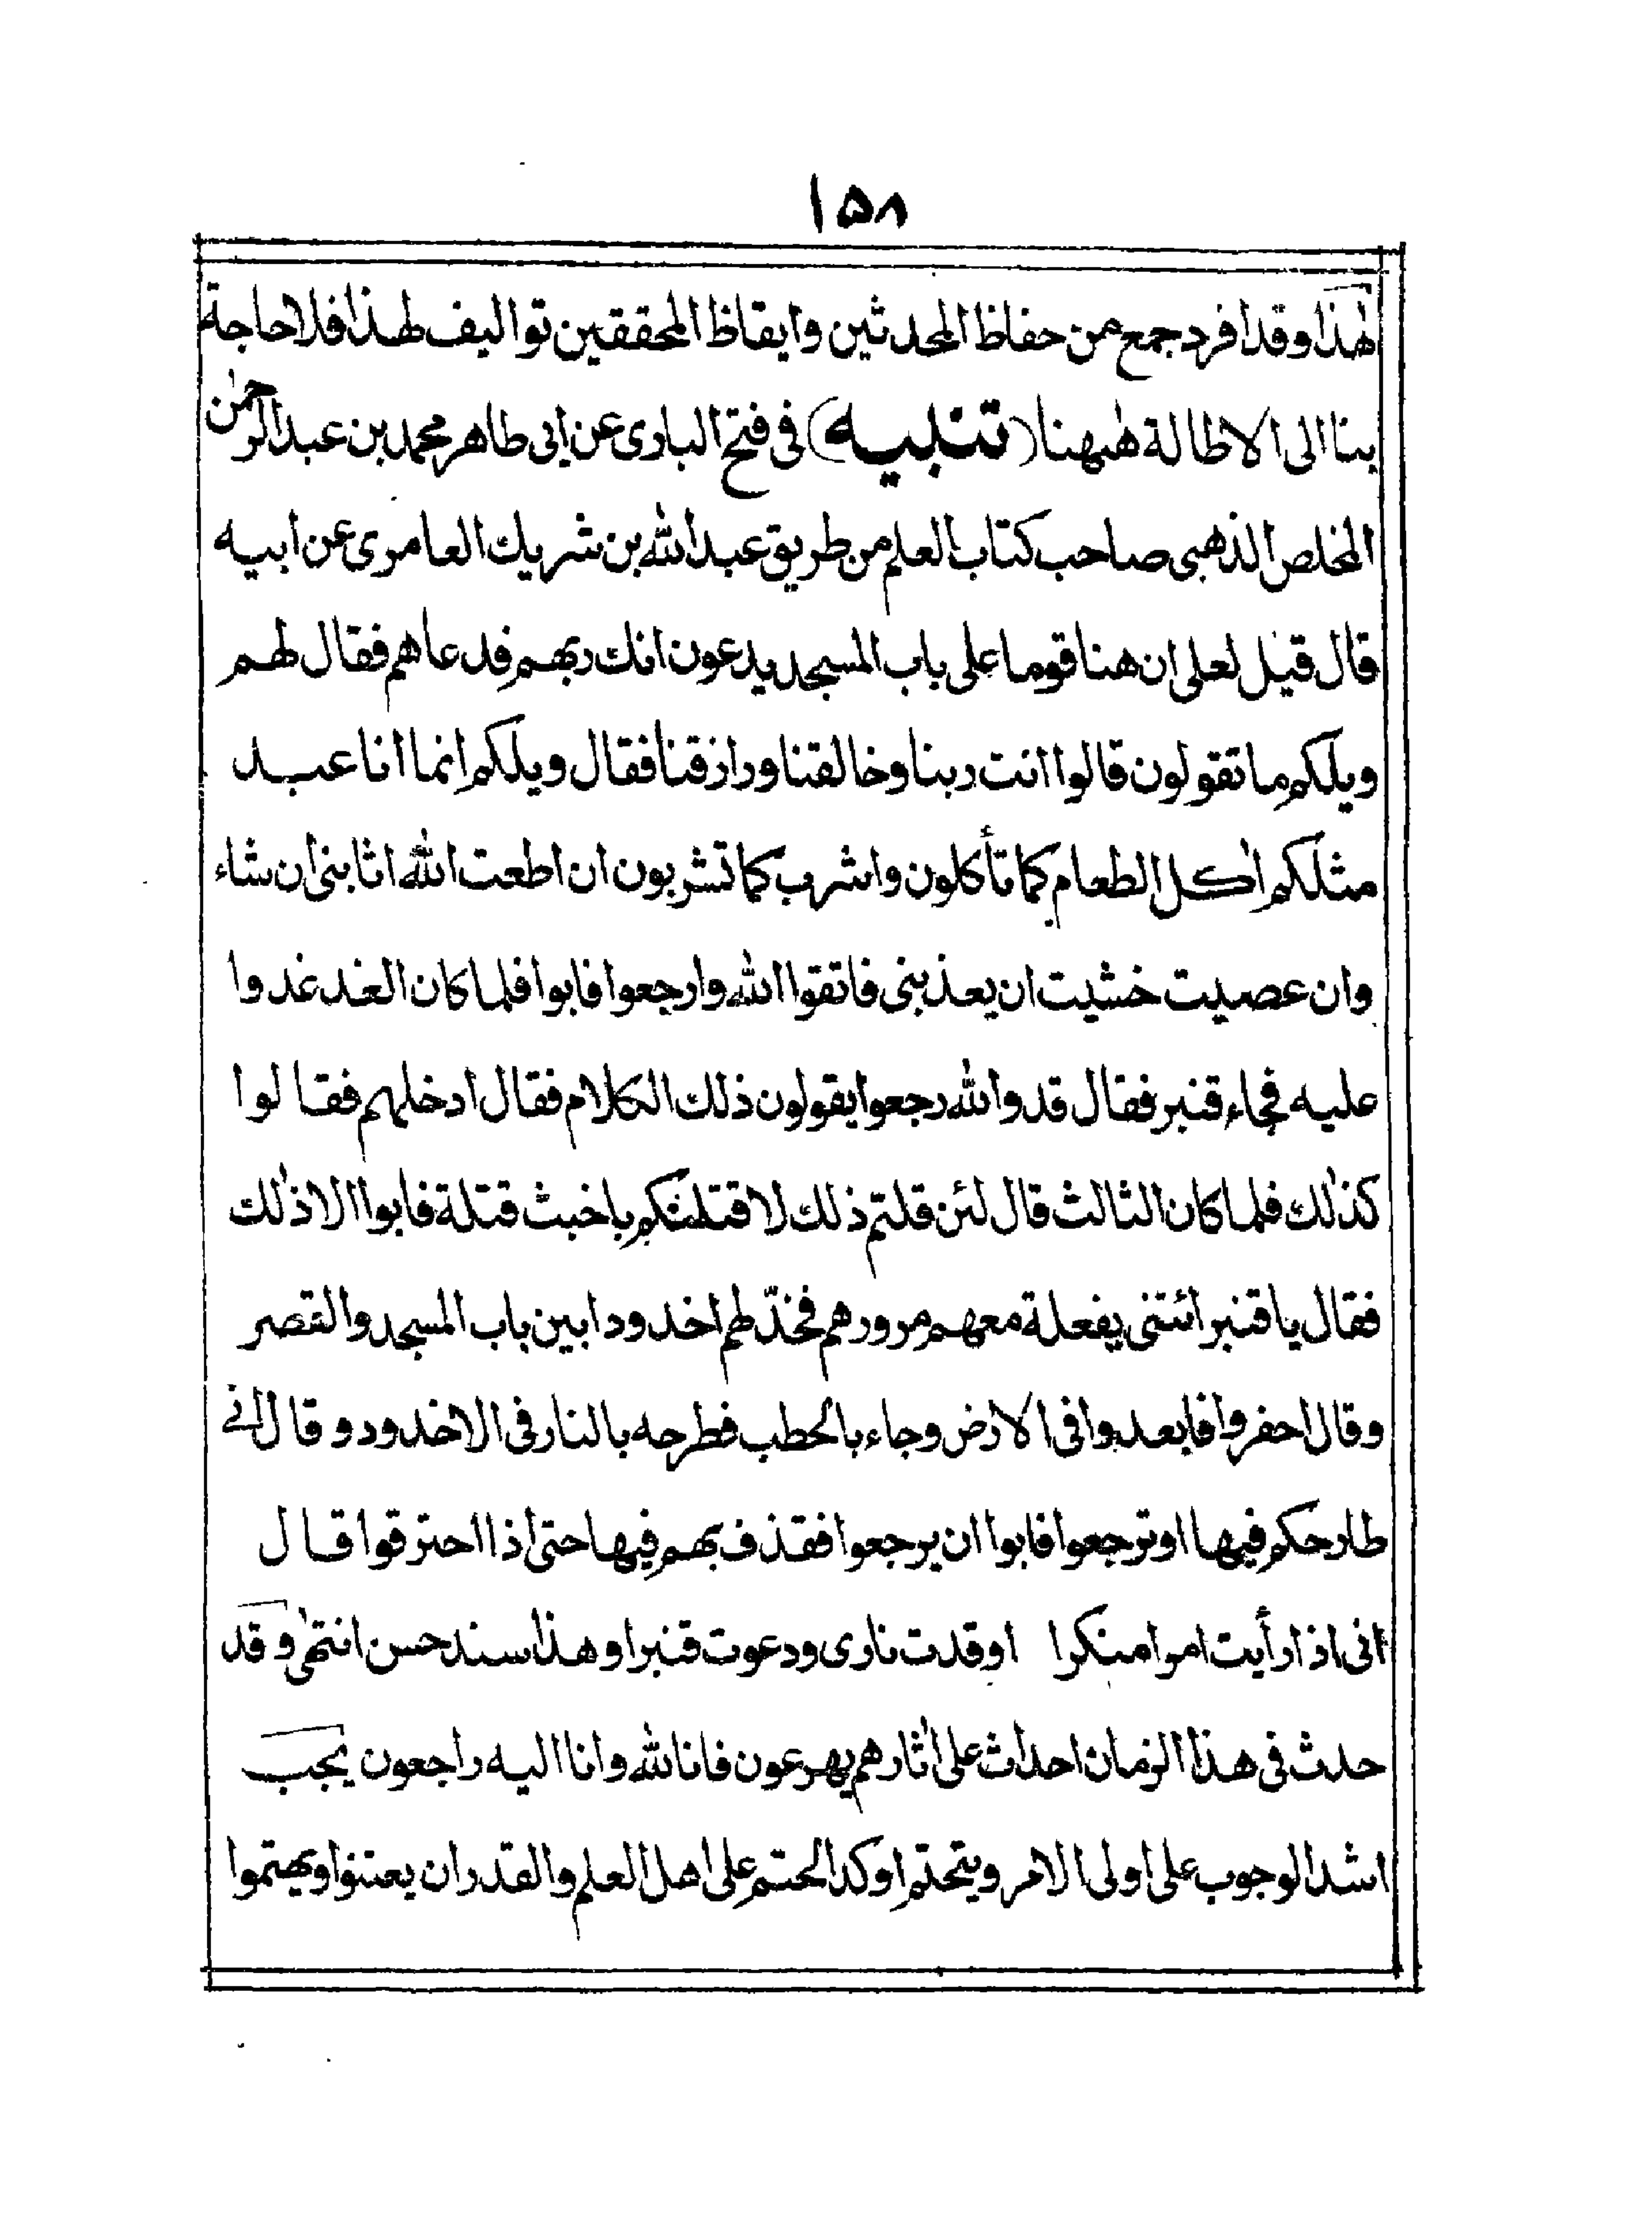 ١٥٨
لهذا وقد افرد جمع من حفاظ المحدثين وايقاظ المحققين تواليف لهذا فلا حاجة
بنا الى الاطالة ههنا (تنبيه) فى فتح البارى عن ابى طاهر محمد بن عبد الرحمٰن
المخلص الذهبى صاحب كتاب العلم من طريق عبد الله بن شريك العامرى عن ابيه
قال قيل لعلى ان هنا قوما على باب المسجد يدعون انك ربهم فدعاهم فقال لهم
ويلكم ما تقولون قالوا انت ربنا وخالقنا ورازقنا فقال ويلكم انما انا عبد
مثلكم اٰكل الطعام كما تأكلون واشرب كما تشربون ان اطعت الله اثابنى ان شاء
وان عصيت خشيت ان يعذبنى فاتقوا الله وارجعوا فابوا فلما كان الغد غدوا
عليه فجاء قنبر فقال قد والله رجعوا يقولون ذلك الكلام فقال ادخلهم فقالوا
كذٰلك فلما كان الثالث قال لئن قلتم ذلك لاقتلنكم باخبث قتلة فابوا الا ذٰلك
فقال يا قنبر ائتنى بفعلة معهم مرورهم فخدّ لهم اخدودا بين باب المسجد والقصر
وقال احفروا فابعدوا فى الارض وجاء بالحطب فطرحه بالنار فى الاخدود وقال انى
طارحكم فيها او ترجعوا فابوا ان يرجعوا فقذف بهم فيها حتى اذا احترقوا قال
انى اذا رأيت امرا منكرا اوقدت نارى ودعوت قنبرا وهذا سند حسن انتهىٰ وقد
حدث فى هذا الزمان احداث على اٰثارهم يهرعون فانا لله وانا اليه راجعون يجب
اشد الوجوب على اولى الامر ويتحتم اوكد الحتم على اهل العلم والقدر ان يعتنوا ويهتموا